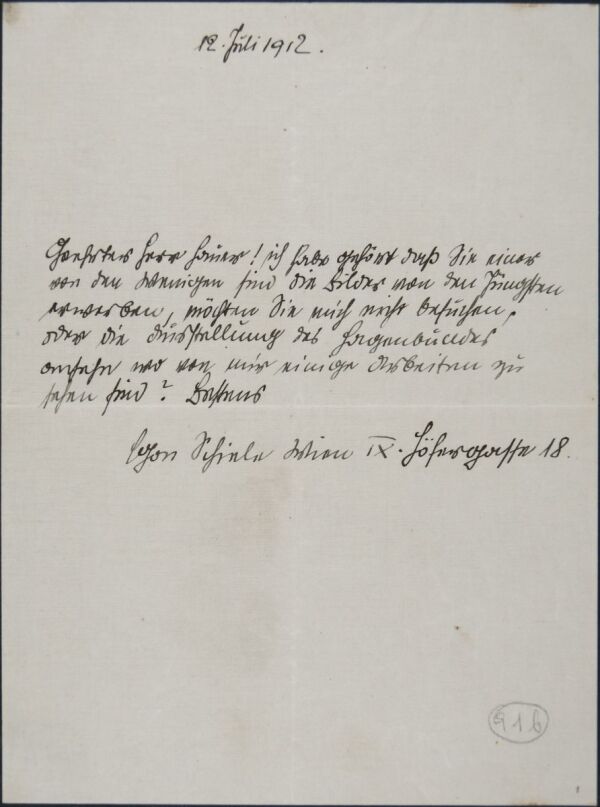 12. Juli 1912.
Geehrter Herr Hauer! ich habe gehört daß Sie einer
von den Wenigen sind die Bilder von den Jüngsten
erwerben, möchten Sie mich nicht besuchen,
oder die Ausstellung des Hagenbundes
ansehn wo von mir einige Arbeiten zu
sehen sind? Bestens
Egon Schiele Wien IX. Höfergasse 18.
916